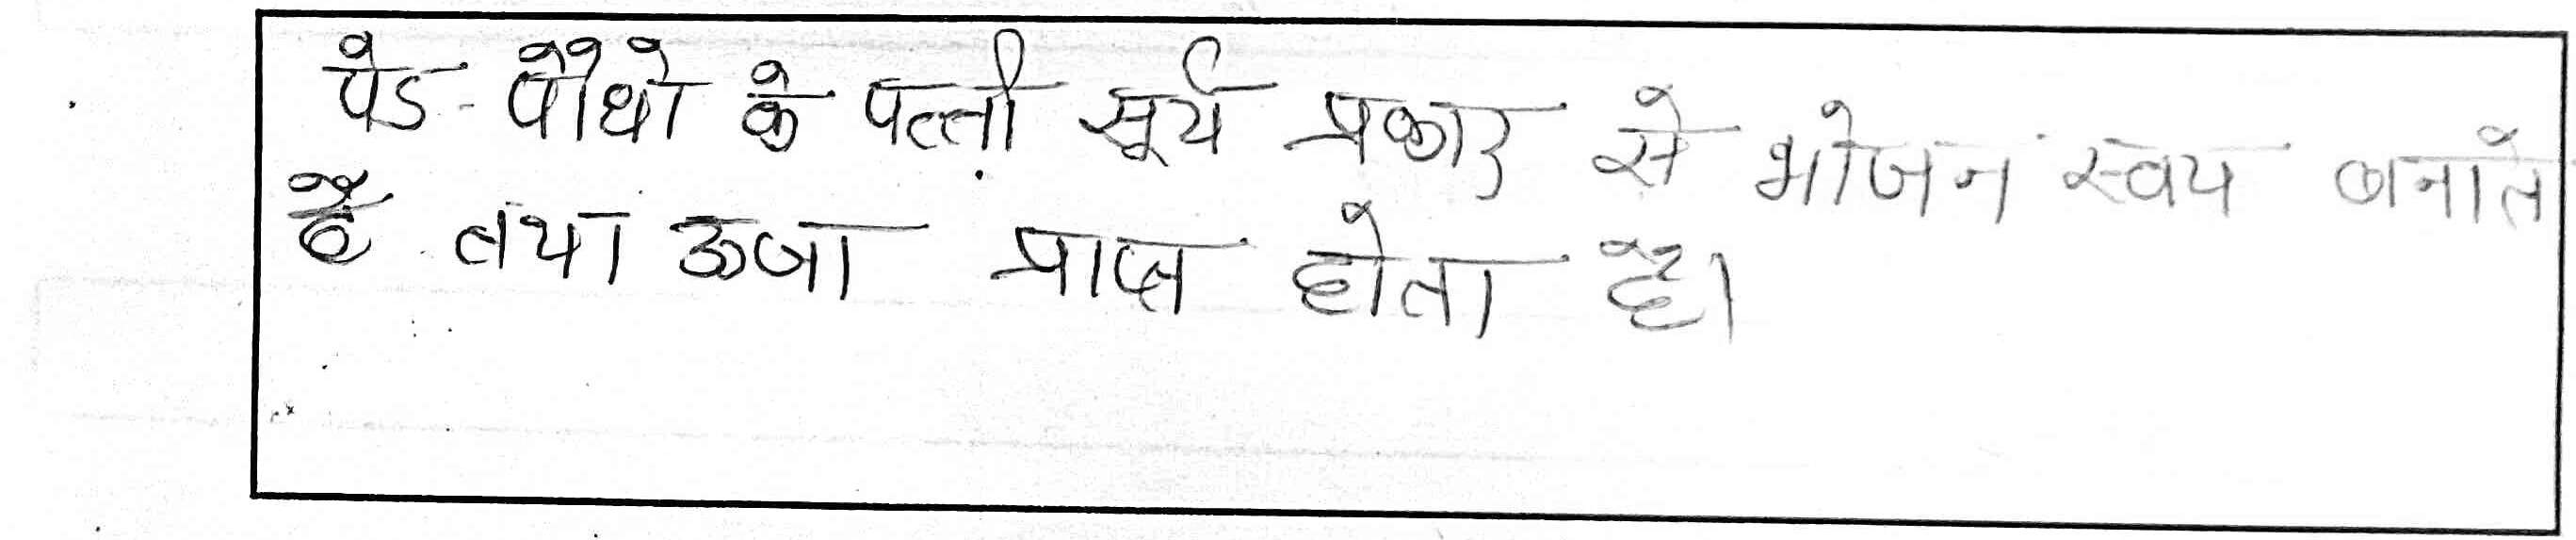 पेड-पौधो के पत्ती सूर्य प्रकार से भोजन स्वय बनाते
है तथा ऊजा प्राप्त होता है।